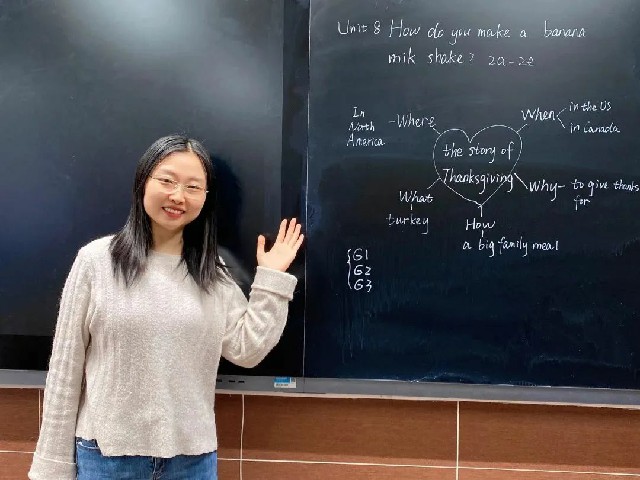 Unit 8 How do you make a banana
milk shake? 2a-2e
In
North
America
Where
When
in the US
in Canada
the story of
Thanksgiving
Why
to give thanks
for
What
turkey
How
a big family meal
G1
G2
G3